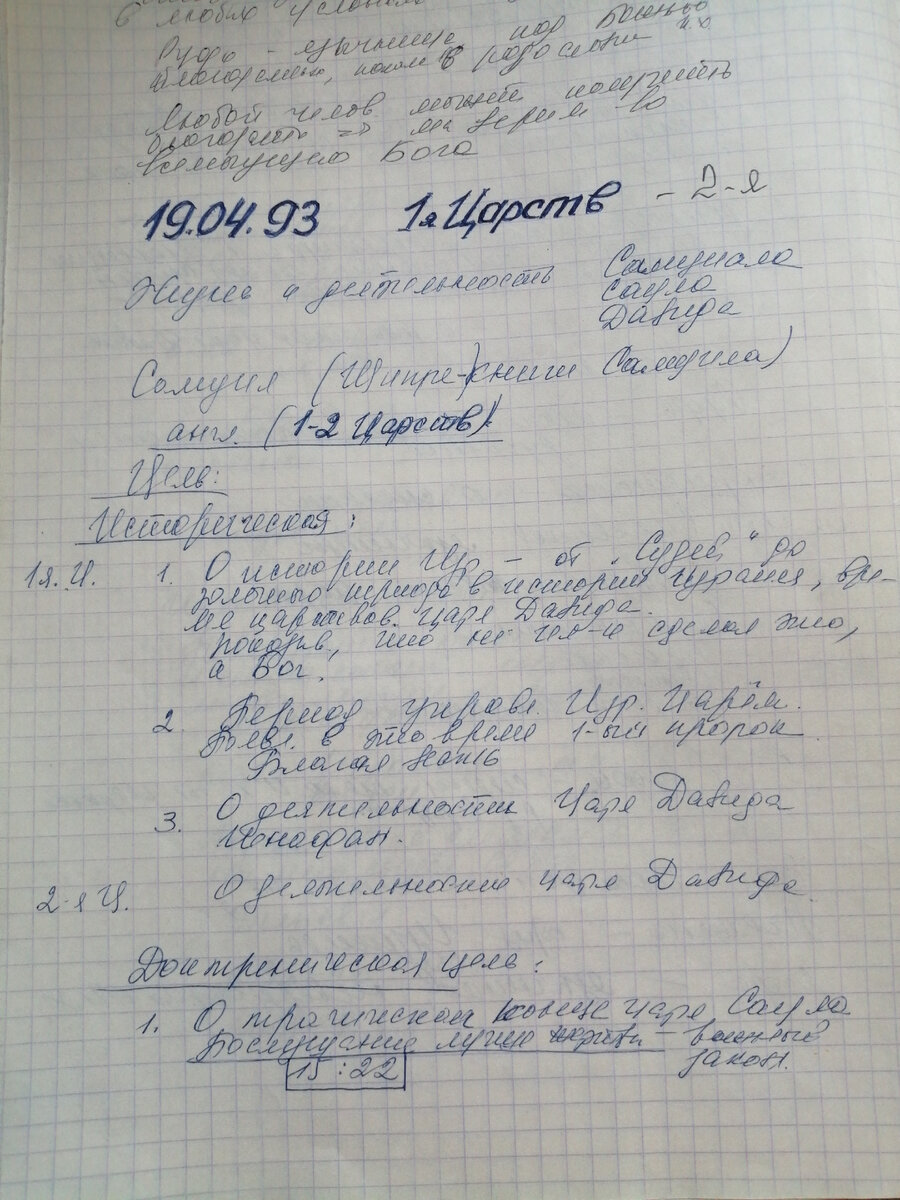 в любых условиях
Руфь - язычница под Божью
благодатью, попала в родословн. И.Х
Любой челов может получить
благодать => мы верим во
всемогущего Бога
19.04.93 1я Царств - 2-я
Жизнь и деятельность Самуила
Саула
Давида
Самуил ( -книги Самуила)
англ. (1-2 Царств)
Цель:
Историческая:
1я.Ц. 1. О истории Изр - от "Судей" до
золотого периода в истории Израиля, вре-
мя царствов. царя Давида.
показыв, что не чел-к сделал это,
а Бог.
2. Период управл. Изр. Царём.
Появл. в это время 1-ый пророк
Благая весть
3. О деятельности Царя Давида
Ионафан.
2-я Ц. О деятельности царя Давида.
Доктреническая цель:
1. О трагическом конце царя Саула
Послушание лучше жертвы - важный
закон.
15:22